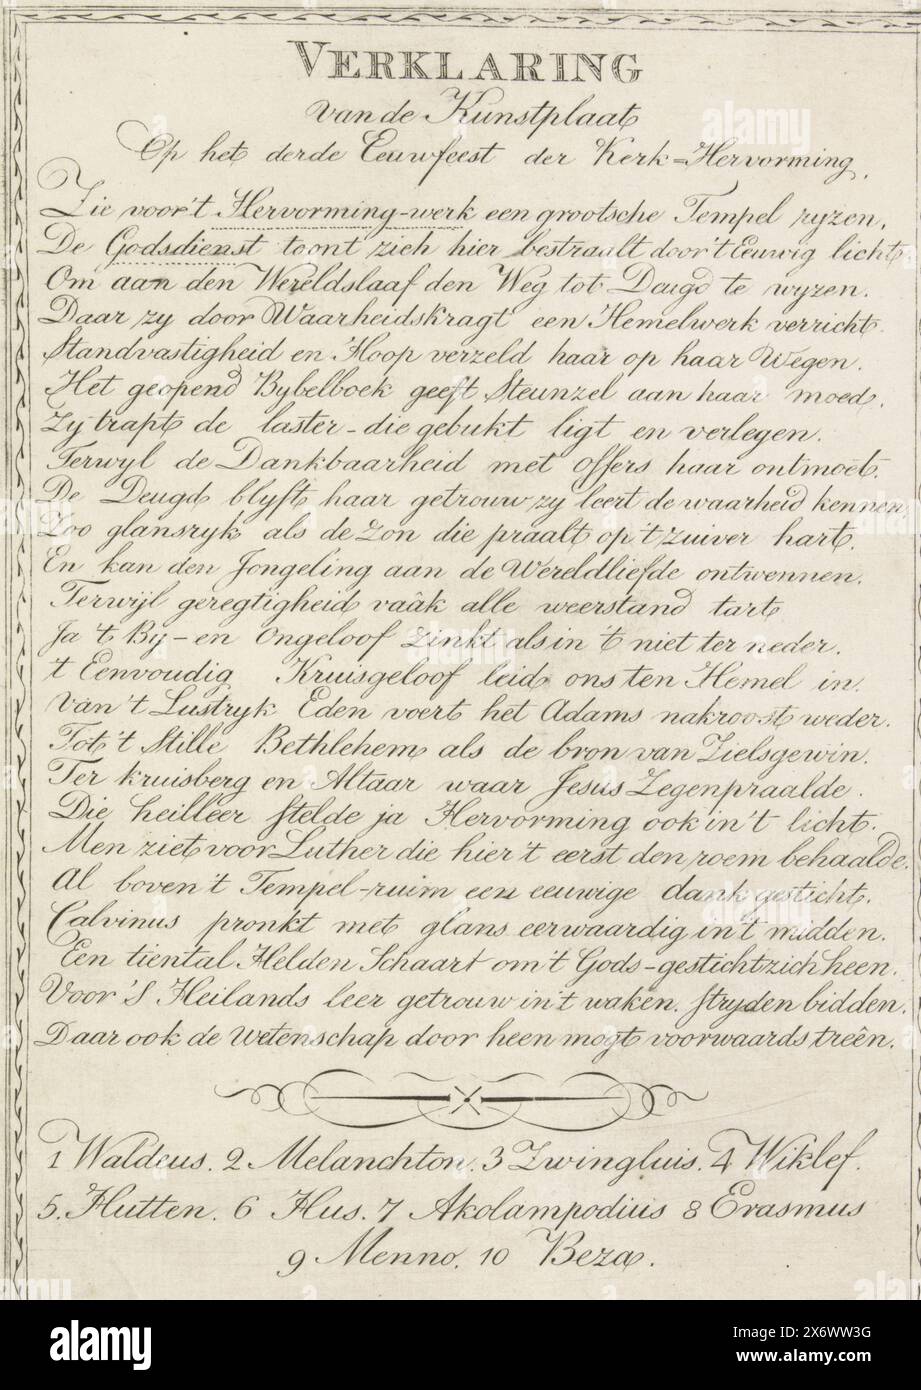 VERKLARING
van de Kunstplaat
Op het derde Eeuwfeest der Kerk=Hervorming.
Zie voor't Hervorming-werk een grootsche Tempel ryzen.
De Godsdienst toont zich hier bestraalt door't Euwig licht
Om aan den Wereldslaaf den Weg tot Deugd te wyzen.
Daar zy door Waarheidskragt een Hemelwerk verricht.
Standvastigheid en Hoop verzeld haar op haar Wegen.
Het geopend Bybelboek geeft Steunzel aan haar moed.
Zy trapt de laster-die gebukt ligt en verlegen.
Terwyl de Dankbaarheid met offers haar ontmoet.
De Deugd blyft haar getrouw zy leert de waarheid kennen
Zoo glansryk als de zon die praalt op 't zuiver hart.
En kan den Jongeling aan de Wereldliefde ontwennen.
Terwijl geregtigheid vaâk alle weerstand tart
Ja 't By-en Ongeloof zinkt als in 't niet ter neder.
't Eenvoudig Kruisgeloof leid ons ten Hemel in.
Van't Lustryk Eden voert het Adams nakroost weder.
Tot 't Stille Bethlehem als de bron van Zielsgewin.
Ter kruisberg en Altaar waar Jesus Zegenpraalde.
Die heilleer stelde ja Hervorming ook in't licht.
Men ziet voor Luther die hier't eerst den roem behaalde.
Al boven't Tempel-ruim een eeuwige dank gesticht.
Calvinus pronkt met glans eerwaardig in't midden.
Een tiental Helden Schaart om't Gods-gesticht zich heen.
Voor 'S Heilands leer getrouw in't waken. stryden bidden.
Daar ook de wetenschap door heen mogt voorwaards treên.
1 Waldeus. 2 Melanchton. 3 Zwingluis. 4 Wiklef.
5. Hutten. 6 Hus. 7 Akolampodius 8 Erasmus
9 Menno. 10 Beza.
alamy
alamy
Image ID: 2X6WW3G
www.alamy.com